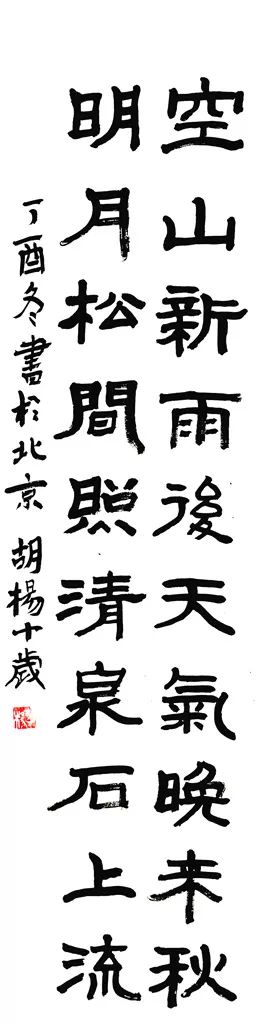 空山新雨後天氣晚来秋
明月松間照清泉石上流
丁酉冬書於北京 胡楊十歲